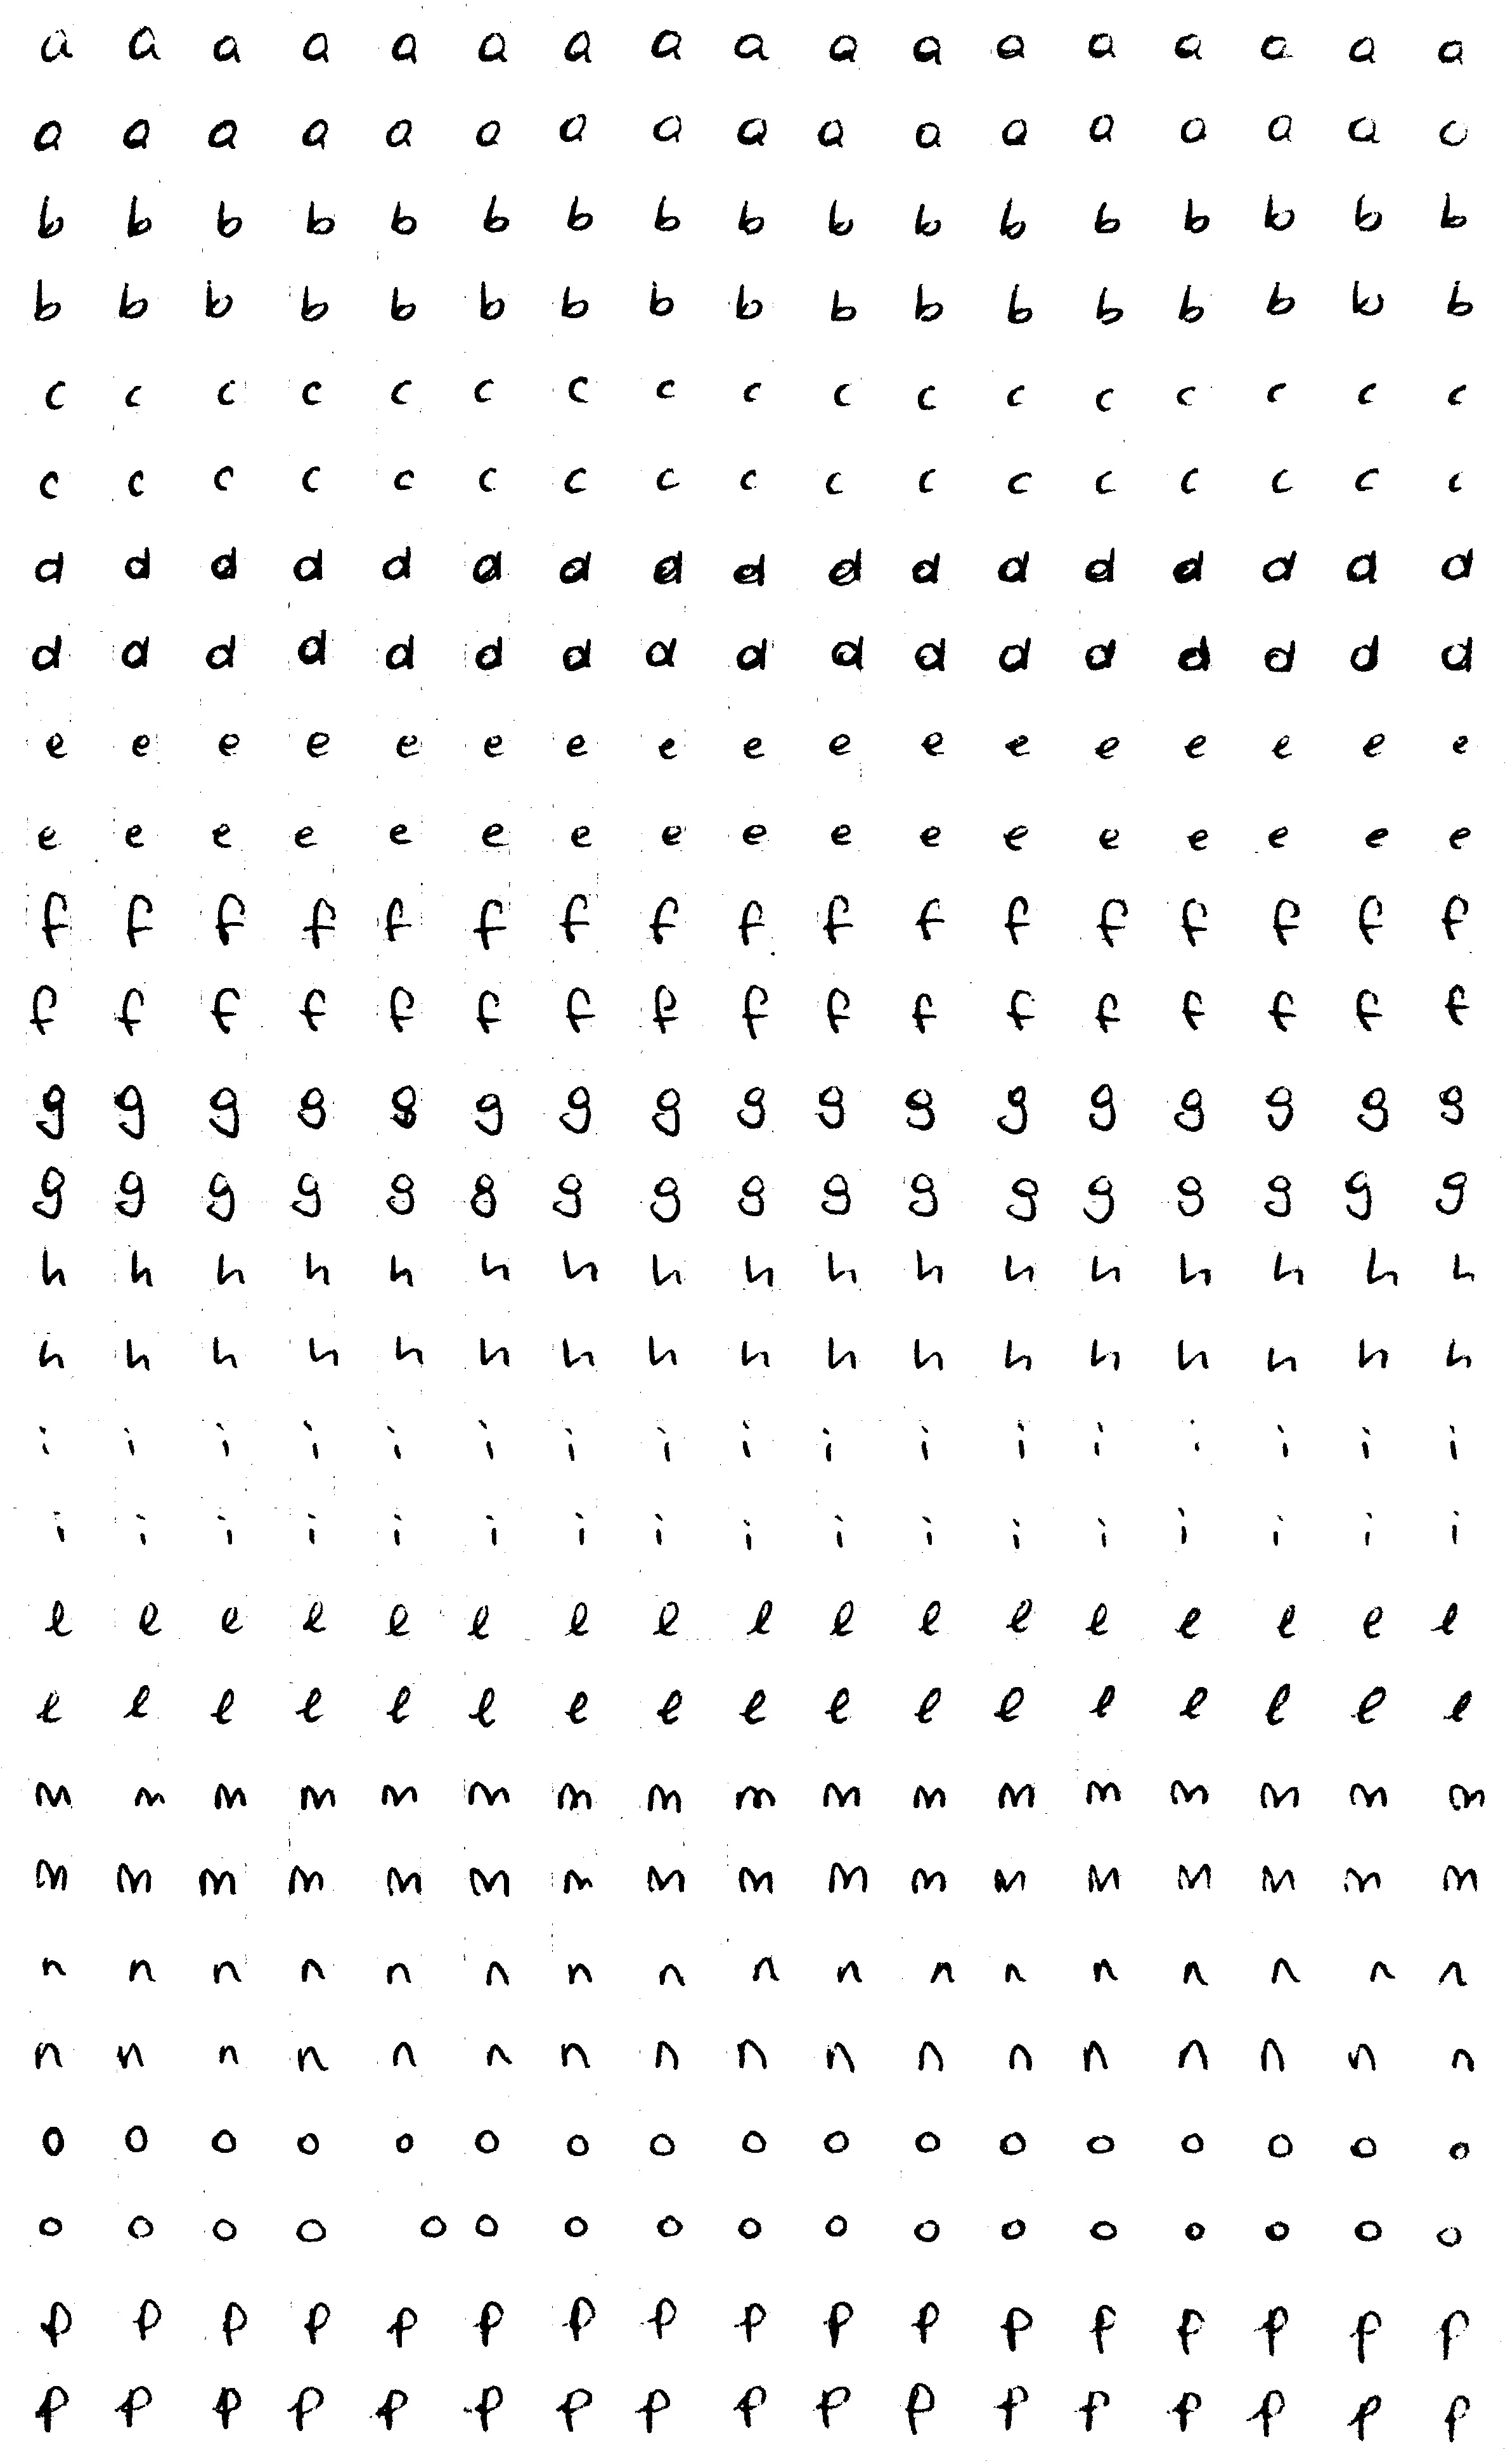 a a a a a a a a a a a a a a a a a
a a a a a a a a a a a a a a a a a
b b b b b b b b b b b b b b b b b
b b b b b b b b b b b b b b b b b
c c c c c c c c c c c c c c c c c
c c c c c c c c c c c c c c c c c
d d d d d d d d d d d d d d d d d
d d d d d d d d d d d d d d d d d
e e e e e e e e e e e e e e e e e
e e e e e e e e e e e e e e e e e
f f f f f f f f f f f f f f f f f
f f f f f f f f f f f f f f f f f
g g g g g g g g g g g g g g g g g
g g g g g g g g g g g g g g g g g
h h h h h h h h h h h h h h h h h
h h h h h h h h h h h h h h h h h
i i i i i i i i i i i i i i i i i
i i i i i i i i i i i i i i i i i
l l l l l l l l l l l l l l l l l
l l l l l l l l l l l l l l l l l
m m m m m m m m m m m m m m m m m
m m m m m m m m m m m m m m m m m
n n n n n n n n n n n n n n n n n
n n n n n n n n n n n n n n n n n
o o o o o o o o o o o o o o o o o
o o o o o o o o o o o o o o o o o
p p p p p p p p p p p p p p p p p
p p p p p p p p p p p p p p p p p